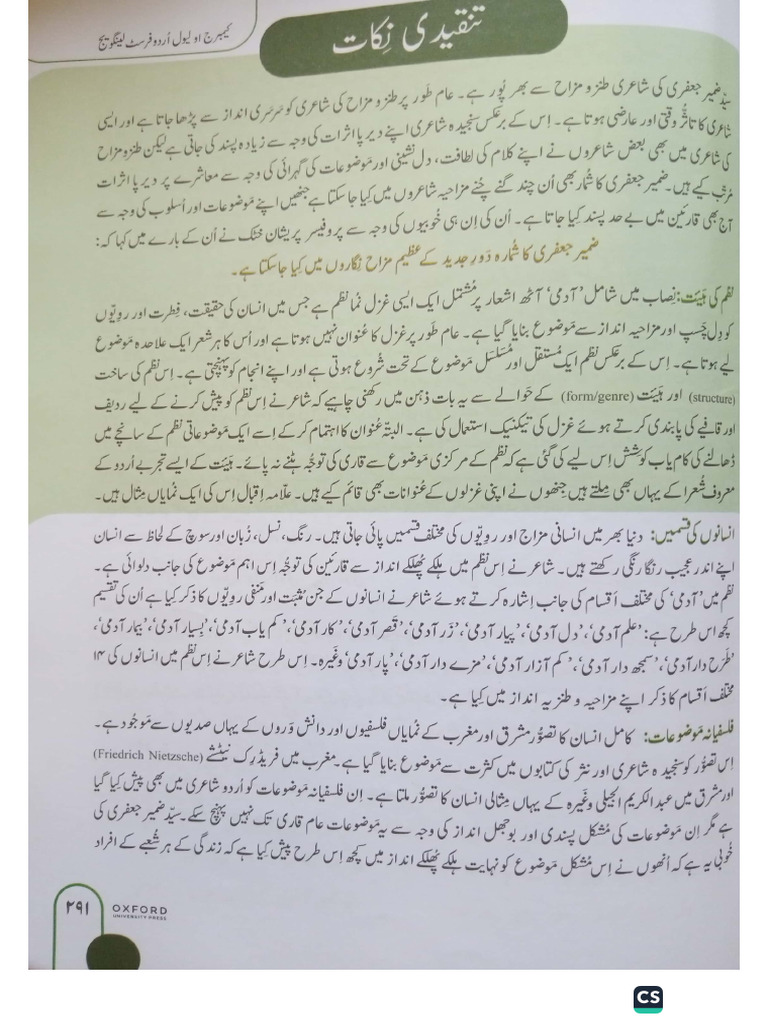 کیمبرج او لیول اُردو فرسٹ لینگویج
تنقیدی نِکات
سیّد ضمیر جعفری کی شاعری طنز و مزاح سے بھر پُور ہے۔ عام طور پر طنز و مزاح کی شاعری کو سَرسَری انداز سے پڑھا جاتا ہے اور ایسی
شاعری کا تاثّر وقتی اور عارضی ہوتا ہے۔ اِس کے برعکس سنجیدہ شاعری اپنے دیرپا اثرات کی وجہ سے زیادہ پسند کی جاتی ہے لیکن طنز و مزاح
کی شاعری میں بھی بعض شاعروں نے اپنے کلام کی لطافت، دل نشینی اور موضوعات کی گہرائی کی وجہ سے معاشرے پر دیرپا اثرات
مرتّب کیے ہیں۔ ضمیر جعفری کا شُمار بھی اُن چند گنے چُنے مزاحیہ شاعروں میں کیا جا سکتا ہے جنھیں اپنے موضوعات اور اُسلوب کی وجہ سے
آج بھی قارئین میں بے حد پسند کیا جاتا ہے۔ اُن کی اِن ہی خُوبیوں کی وجہ سے پروفیسر پریشان خٹک نے اُن کے بارے میں کہا کہ:
ضمیر جعفری کا شُمارہ دَورِ جدید کے عظیم مزاح نِگاروں میں کیا جا سکتا ہے۔
نظم کی ہَیئت: نِصاب میں شامل ’آدمی‘ آٹھ اشعار پر مُشتمل ایک ایسی غزل نُما نظم ہے جس میں انسان کی حقیقت، فِطرت اور رویّوں
کو دِل چَسپ اور مزاحیہ انداز سے مَوضوع بنایا گیا ہے۔ عام طَور پر غزل کا عُنوان نہیں ہوتا ہے اور اُس کا ہر شعر ایک علاحدہ مَوضوع
لیے ہوتا ہے۔ اِس کے برعَکس نظم ایک مُستقل اور مُسَلسَل مَوضوع کے تحت شُروع ہوتی ہے اور اپنے انجام کو پہنچتی ہے۔ اِس نظم کی ساخت
(structure) اور ہَیئت (form/genre) کے حَوالے سے یہ بات ذہن میں رکھنی چاہیے کہ شاعر نے اِس نظم کو پیش کرنے کے لیے ردیف
اور قافیے کی پابندی کرتے ہوئے غزل کی تیکنیک استعمال کی ہے۔ البتّہ عُنوان کا اہتمام کر کے اِسے ایک مَوضوعاتی نظم کے سانچے میں
ڈھالنے کی کام یاب کوشِش اِس لیے کی گئی ہے کہ نظم کے مرکزی مَوضوع سے قاری کی توجّہ ہٹنے نہ پائے۔ ہَیئت کے ایسے تجربے اُردو کے
معروف شُعرا کے یہاں بھی مِلتے ہیں جِنھوں نے اپنی غزلوں کے عُنوانات بھی قائم کیے ہیں۔ علّامہ اِقبال اِس کی ایک نُمایاں مِثال ہیں۔
انسانوں کی قسمیں: دنیا بھر میں انسانی مزاج اور رویّوں کی مختلف قسمیں پائی جاتی ہیں۔ رنگ، نسل، زُبان اور سوچ کے لحاظ سے انسان
اپنے اندر عجیب رنگا رنگی رکھتے ہیں۔ شاعر نے اِس نظم میں ہلکے پُھلکے انداز سے قارئین کی توجُّہ اِس اہم موضوع کی جانب دلوائی ہے۔
نظم میں ’آدمی‘ کی مختلف اَقسام کی جانب اِشارہ کرتے ہوئے شاعر نے انسانوں کے جن مُثبَت اور مَنفی رویّوں کا ذکر کیا ہے اُن کی تقسیم
کچھ اس طرح ہے: ’علم آدمی‘، ’دل آدمی‘، ’پیار آدمی‘، ’زَر آدمی‘، ’قَصر آدمی‘، ’کار آدمی‘، ’کم یاب آدمی‘، ’بِسیار آدمی‘، ’بیمار آدمی‘،
’طَرَح دار آدمی‘، ’سمجھ دار آدمی‘، ’کم آزار آدمی‘، ’مزے دار آدمی‘، ’پار آدمی‘ وغیرہ۔ اِس طرح شاعر نے اِس نظم میں انسانوں کی ۱۴
مختلف اَقسام کا ذکر اپنے مزاحیہ و طنزیہ انداز میں کیا ہے۔
فلسفیانہ مَوضوعات: کامل انسان کا تصوُّر مشرق اور مغرب کے نُمایاں فلسفیوں اور دانش وَروں کے یہاں صدیوں سے مَوجُود ہے۔
اِس تصوُّر کو سنجیدہ شاعری اور نثر کی کتابوں میں کثرت سے مَوضوع بنایا گیا ہے۔ مغرب میں فریڈرِک نیٹشے (Friedrich Nietzsche)
اور مشرق میں عبدالکریم الجیلی وغیرہ کے یہاں مِثالی انسان کا تصوُّر ملتا ہے۔ اِن فلسفیانہ مَوضوعات کو اُردو شاعری میں بھی پیش کیا گیا
ہے مگر اِن مَوضوعات کی مُشکل پسندی اور بوجھل انداز کی وجہ سے یہ مَوضوعات عام قاری تک نہیں پہنچ سکے۔ سیّد ضمیر جعفری کی
خُوبی یہ ہے کہ اُنھوں نے اِس مُشکل مَوضوع کو نہایت ہلکے پُھلکے انداز میں کچھ اِس طرح پیش کیا ہے کہ زندگی کے ہر شُعبے کے افراد
۲۹۱
OXFORD
UNIVERSITY PRESS
CS